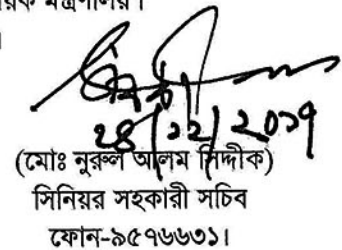 মন্ত্রণালয়।
২৪/১২/২০১৭
(মোঃ নুরুল আলম সিদ্দীক)
সিনিয়র সহকারী সচিব
ফোন-৯৫৭৬৬৩১।